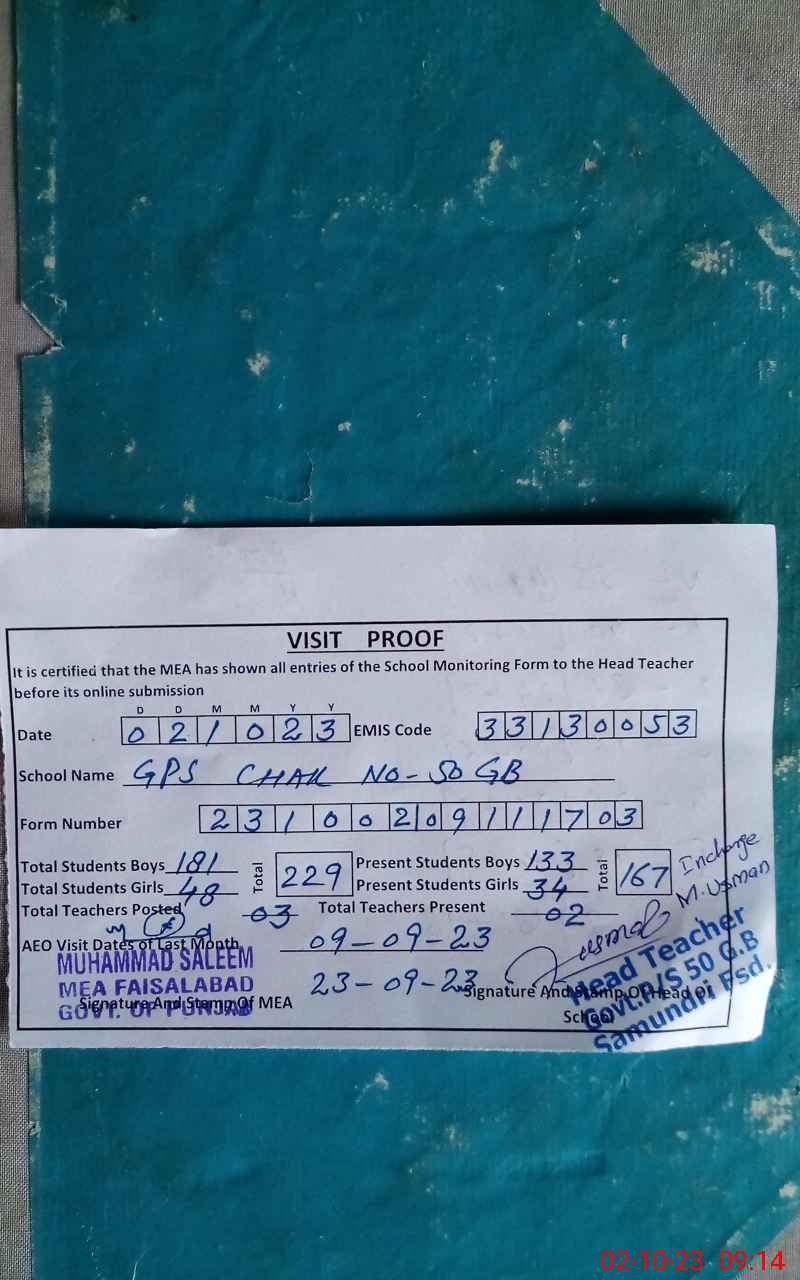 VISIT PROOF
It is certified that the MEA has shown all entries of the School Monitoring Form to the Head Teacher
before its online submission
D D M M Y Y
Date 021023 EMIS Code 33130053
School Name GPS CHAK NO-50 GB
Form Number 23100209111703
Total Students Boys 181 Total 229 Present Students Boys 133 Total 167 Incharge
Total Students Girls 48 Present Students Girls 34 M. Usman
Total Teachers Posted 03 Total Teachers Present 02
AEO Visit Dates of Last Month 09-09-23
23-09-23
MUHAMMAD SALEEM
MEA FAISALABAD
GOVT. OF PUNJAB
Signature And Stamp Of MEA
Signature And Stamp Of Head Of
School
Head Teacher
Govt.P/S 50 G.B
Samundri Fsd.
02-10-23 09:14